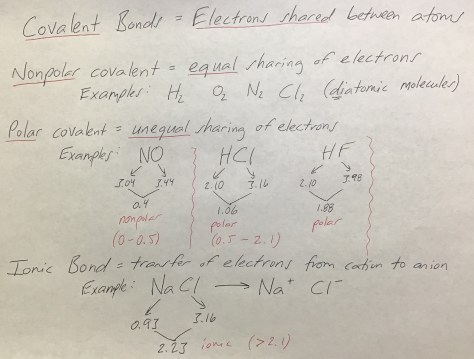 Covalent Bonds = Electrons shared between atoms
Nonpolar covalent = equal sharing of electrons
Examples: H₂ O₂ N₂ Cl₂ (diatomic molecules)
Polar covalent = unequal sharing of electrons
Examples: NO HCl HF
3.04 3.44 2.10 3.16 2.10 3.98
0.4 1.06 1.88
nonpolar polar polar
(0-0.5) (0.5-2.1)
Ionic Bond = transfer of electrons from cation to anion
Example: NaCl → Na⁺ Cl⁻
0.93 3.16
2.23 ionic (>2.1)